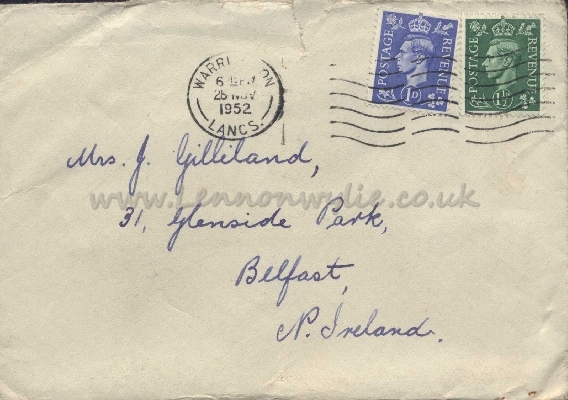 POSTAGE REVENUE
1D
POSTAGE REVENUE
1½D
WARRINGTON
25 NOV
1952
LANCS.
Mrs. J. Gilliland,
www.Lennonwylie.co.uk
31, Glenside Park,
Belfast,
N. Ireland.